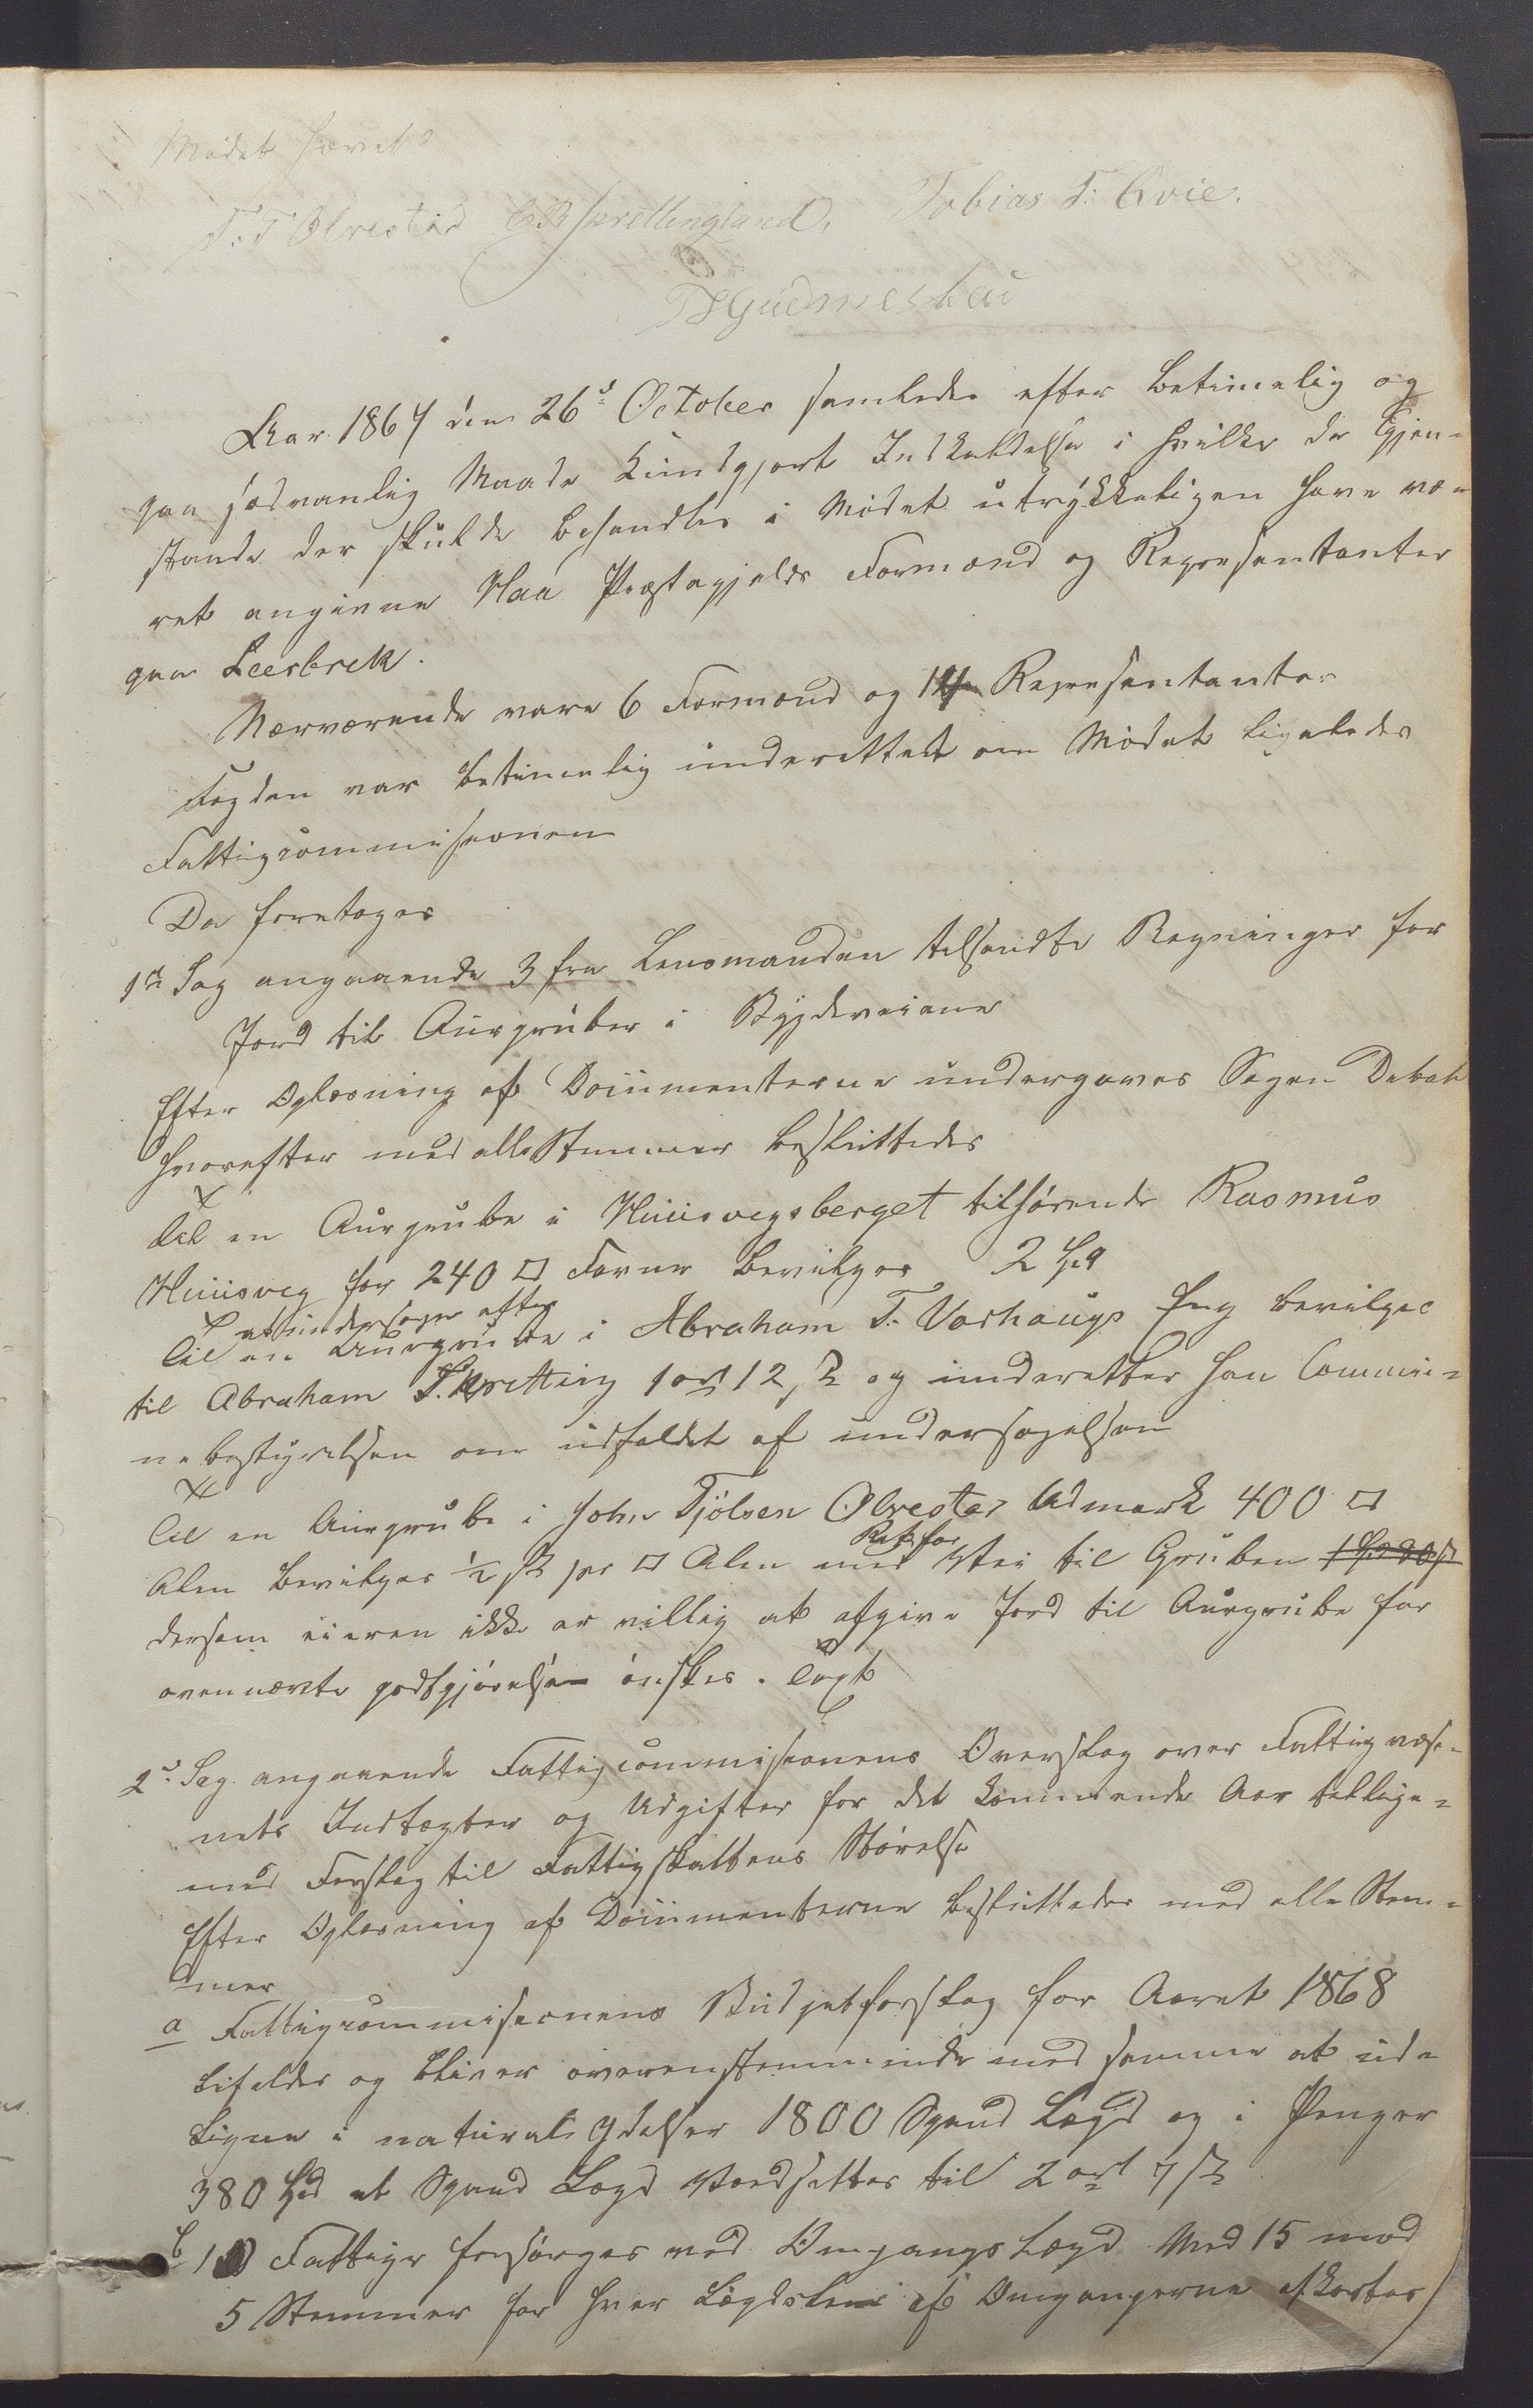 Mødet hævet
T. T Ølvestad C B Skrettingland, Tobias T: Qvie.
T S Gudmestad
Aar 1867 den 26d October samledes efter betimelig og
paa sædvanlig Maade kundgjort Indkaldelse i hvilke de Gjen-
stande der skulde behandles i Mødet utrykkeligen have væ-
ret angivne Haa Præstegjelds Formænd og Representanter
paa Leerbrek.
Nærværende vare 6 Formænd og 14 Representanter
Fogden var betimelig underettet om Mødet ligeledes
Fattigcommisionen
Da foretoges
1te Sag angaaende 3 fra Lensmanden tilsendte Regninger for
Jord til Aurgruber i Bygdeveiene
Efter Oplæsning af Documenterne undergaves Sagen Debat
hvorefter med alle Stemmer besluttedes
Til en Aurgrube i Huusvegsberget tilhørende Rasmus
Huusveg for 240 □ Favne bevilges 2 Spd
at undersøge efter
Til en Aurgrube i Abraham T. Varhaugs Eng bevilges
til Abraham T. Skretting 1 ort 12 ß og underetter han Commu-
nebestyrelsen om udfaldet af undersøgelsen
Til en Aurgrube i John Tjølsen Ølvestad Udmark 400 □
Ret for
Alen bevilges ½ ß pr □ Alen med Vei til Gruben
dersom eieren ikke er villig at afgive Jord til Aurgrube for
ovennævte godtgjørelse ønskes Taxt
2d Sag angaaende Fattigcommisionens Overslag over Fattigvæse-
nets Indtægter og Udgifter for det kommende Aar tillige-
med Forslag til Fattigskattens Størelse
Efter Oplæsning af Documenterne besluttedes med alle Stem-
mer
a Fattigcommisionens Budjetforslag for Aaret 1868
bifaldes og bliver overenstemmende med samme at ud-
ligne i naturalydelser 1800 Spand Lægd og i Penger
380 Spd et Spand Lægd Værdsættes til 2 ort 7 ß
b 10 Fattige forsørges ved Omgangs Lægd Med 15 mod
5 Stemmer for hver Lægdslem af Omgangerne afkortes